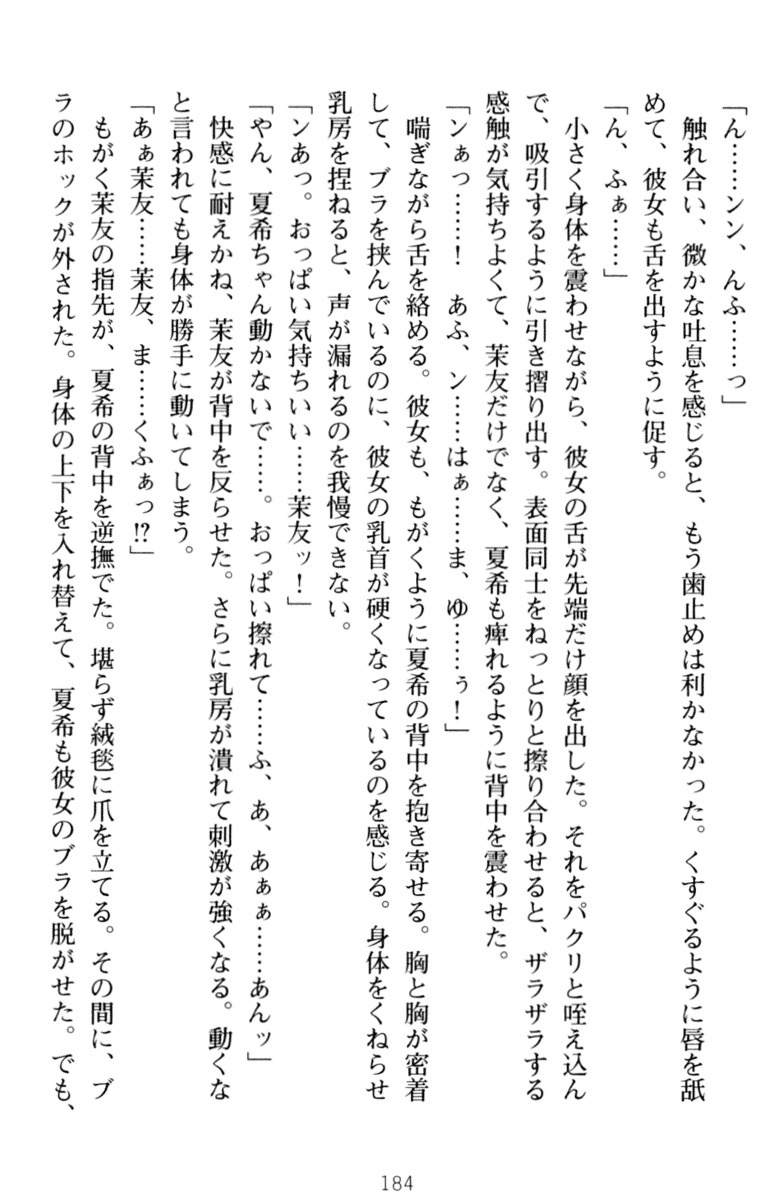 「ん……ンン、んふ……っ」
　触れ合い、微かな吐息を感じると、もう歯止めは利かなかった。くすぐるように唇を舐
めて、彼女も舌を出すように促す。
「ん、ふぁ……」
　小さく身体を震わせながら、彼女の舌が先端だけ顔を出した。それをパクリと咥え込ん
で、吸引するように引き摺り出す。表面同士をねっとりと擦り合わせると、ザラザラする
感触が気持ちよくて、茉友だけでなく、夏希も痺れるように背中を震わせた。
「ンぁっ……！　あふ、ン……はぁ……ま、ゆ……ぅ！」
　喘ぎながら舌を絡める。彼女も、もがくように夏希の背中を抱き寄せる。胸と胸が密着
して、ブラを挟んでいるのに、彼女の乳首が硬くなっているのを感じる。身体をくねらせ
乳房を捏ねると、声が漏れるのを我慢できない。
「ンあっ。おっぱい気持ちいい……茉友ッ！」
「やん、夏希ちゃん動かないで……。おっぱい擦れて……ふ、あ、あぁぁ……あんッ」
　快感に耐えかね、茉友が背中を反らせた。さらに乳房が潰れて刺激が強くなる。動くな
と言われても身体が勝手に動いてしまう。
「あぁ茉友……茉友、ま……くふぁっ!?」
　もがく茉友の指先が、夏希の背中を逆撫でた。堪らず絨毯に爪を立てる。その間に、ブ
ラのホックが外された。身体の上下を入れ替えて、夏希も彼女のブラを脱がせた。でも、
184